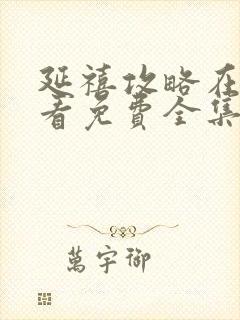 延禧攻略在
看免费全集
萬宇御